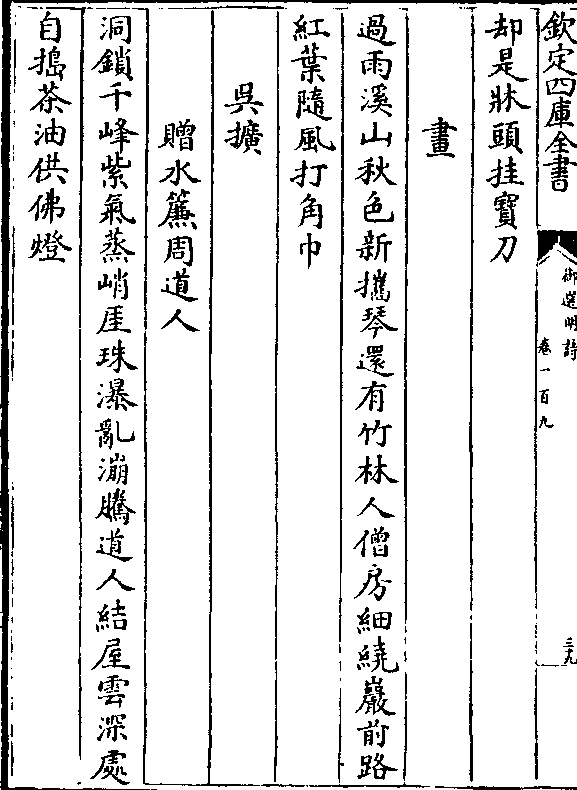 欽定四庫全書
御選明詩
卷一百九
三九
却是牀頭挂寶刀
畫
過雨溪山秋色新攜琴還有竹林人僧房細繞巖前路
紅葉隨風打角巾
吳擴
贈水簾周道人
洞鎖千峰紫氣蒸峭厓珠瀑亂漰騰道人結屋雲深處
自搗茶油供佛燈